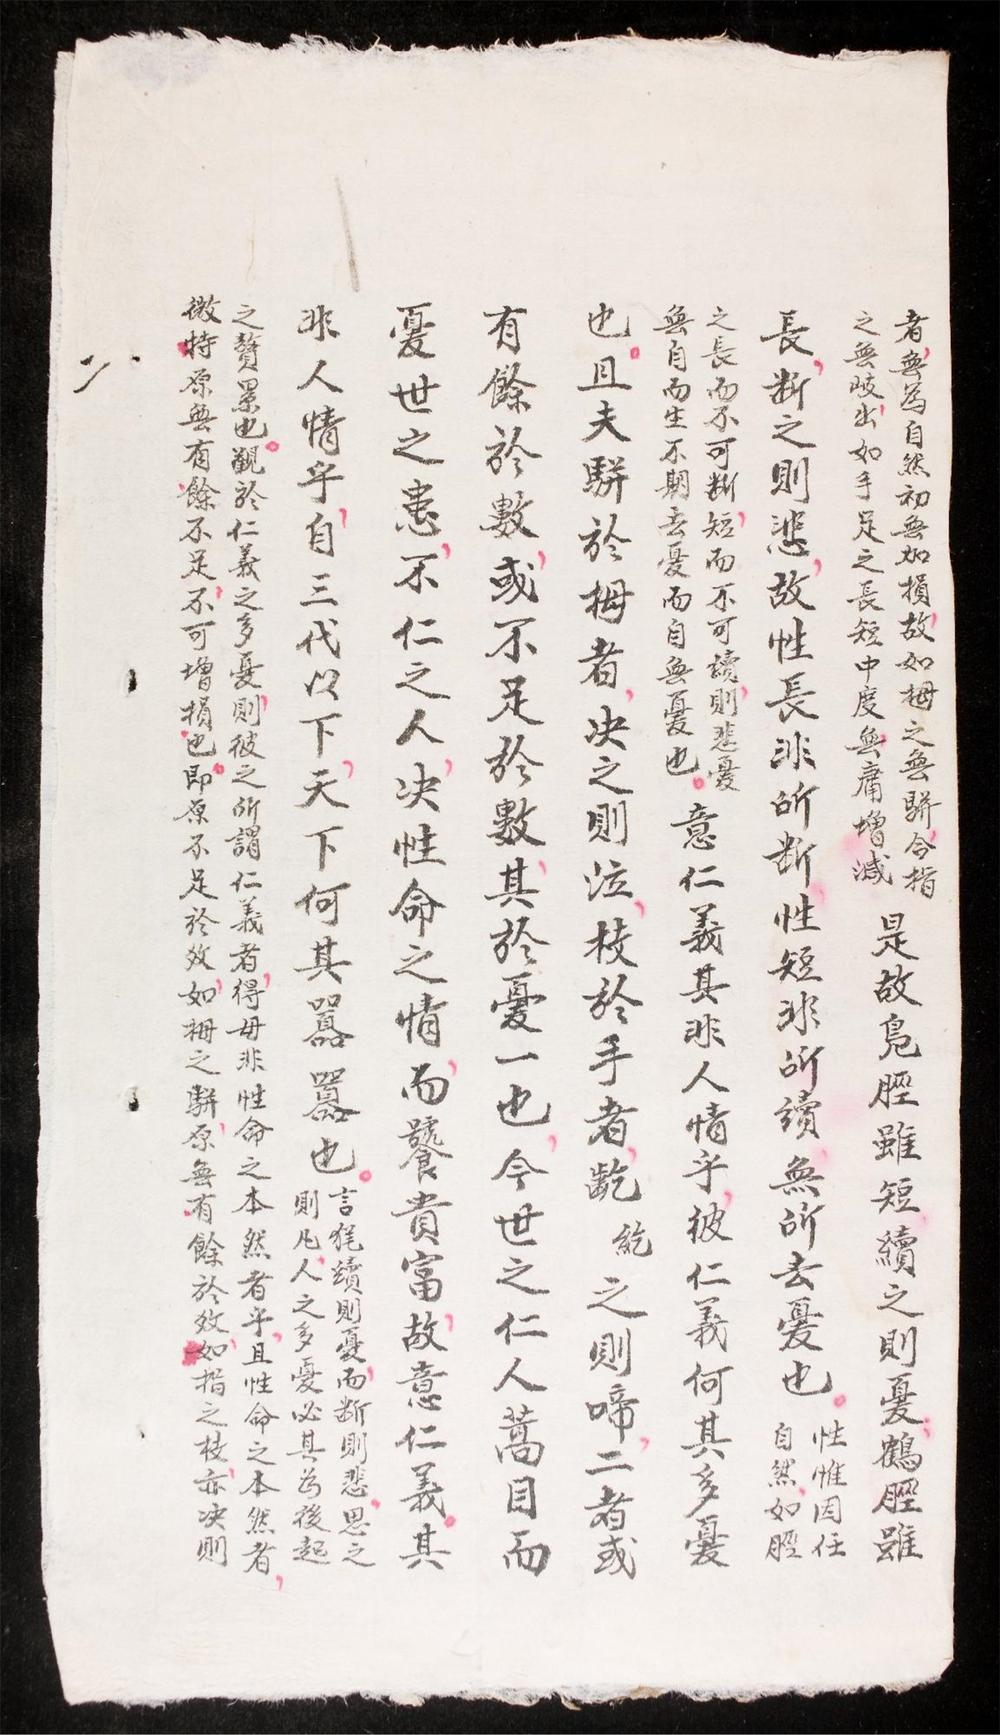 者，無為自然初無加損，故如拇之無駢合指
之無岐出，如手足之長短中度，無庸增減
是故鳧脛雖短，續之則憂，鶴脛雖
長，斷之則悲，故性長非所斷，性短非所續，無所去憂也。
性惟因任
自然，如脛
之長而不可斷，短而不可續，則悲憂
無自而生，不期去憂而自無憂也。
意仁義其非人情乎，彼仁義何其多憂
也。且夫駢於拇者，决之則泣，枝於手者，齕
紇
之則啼，二者或
有餘於數，或不足於數，其於憂一也，今世之仁人蒿目而
憂世之患，不仁之人，决性命之情，而饕貴富，故意仁義。其
非人情乎，自三代以下，天下何其囂囂也。
言

續則憂，而斷則悲，思之
則凡人之多憂，必其為後起
之贅累也。觀於仁義之多憂，則彼之所謂仁義者，得毋非性命之本然者乎，且性命之本然者，
微特原無有餘不足，不可增損也。即原不足於效，如拇之駢，原無有餘於效，如指之枝，亦决則